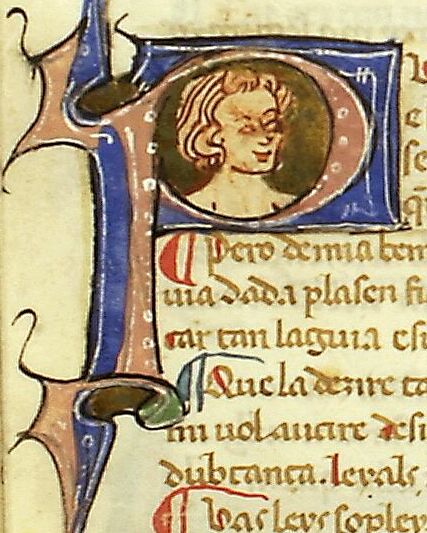 P
e
se
¶ Pero de mia ben
uia dada plasen fi
tar tan laguia esi
¶ Que la dezire ta
mi uol aucire desi
dubtanta. leuals
¶ Vas leys sopley